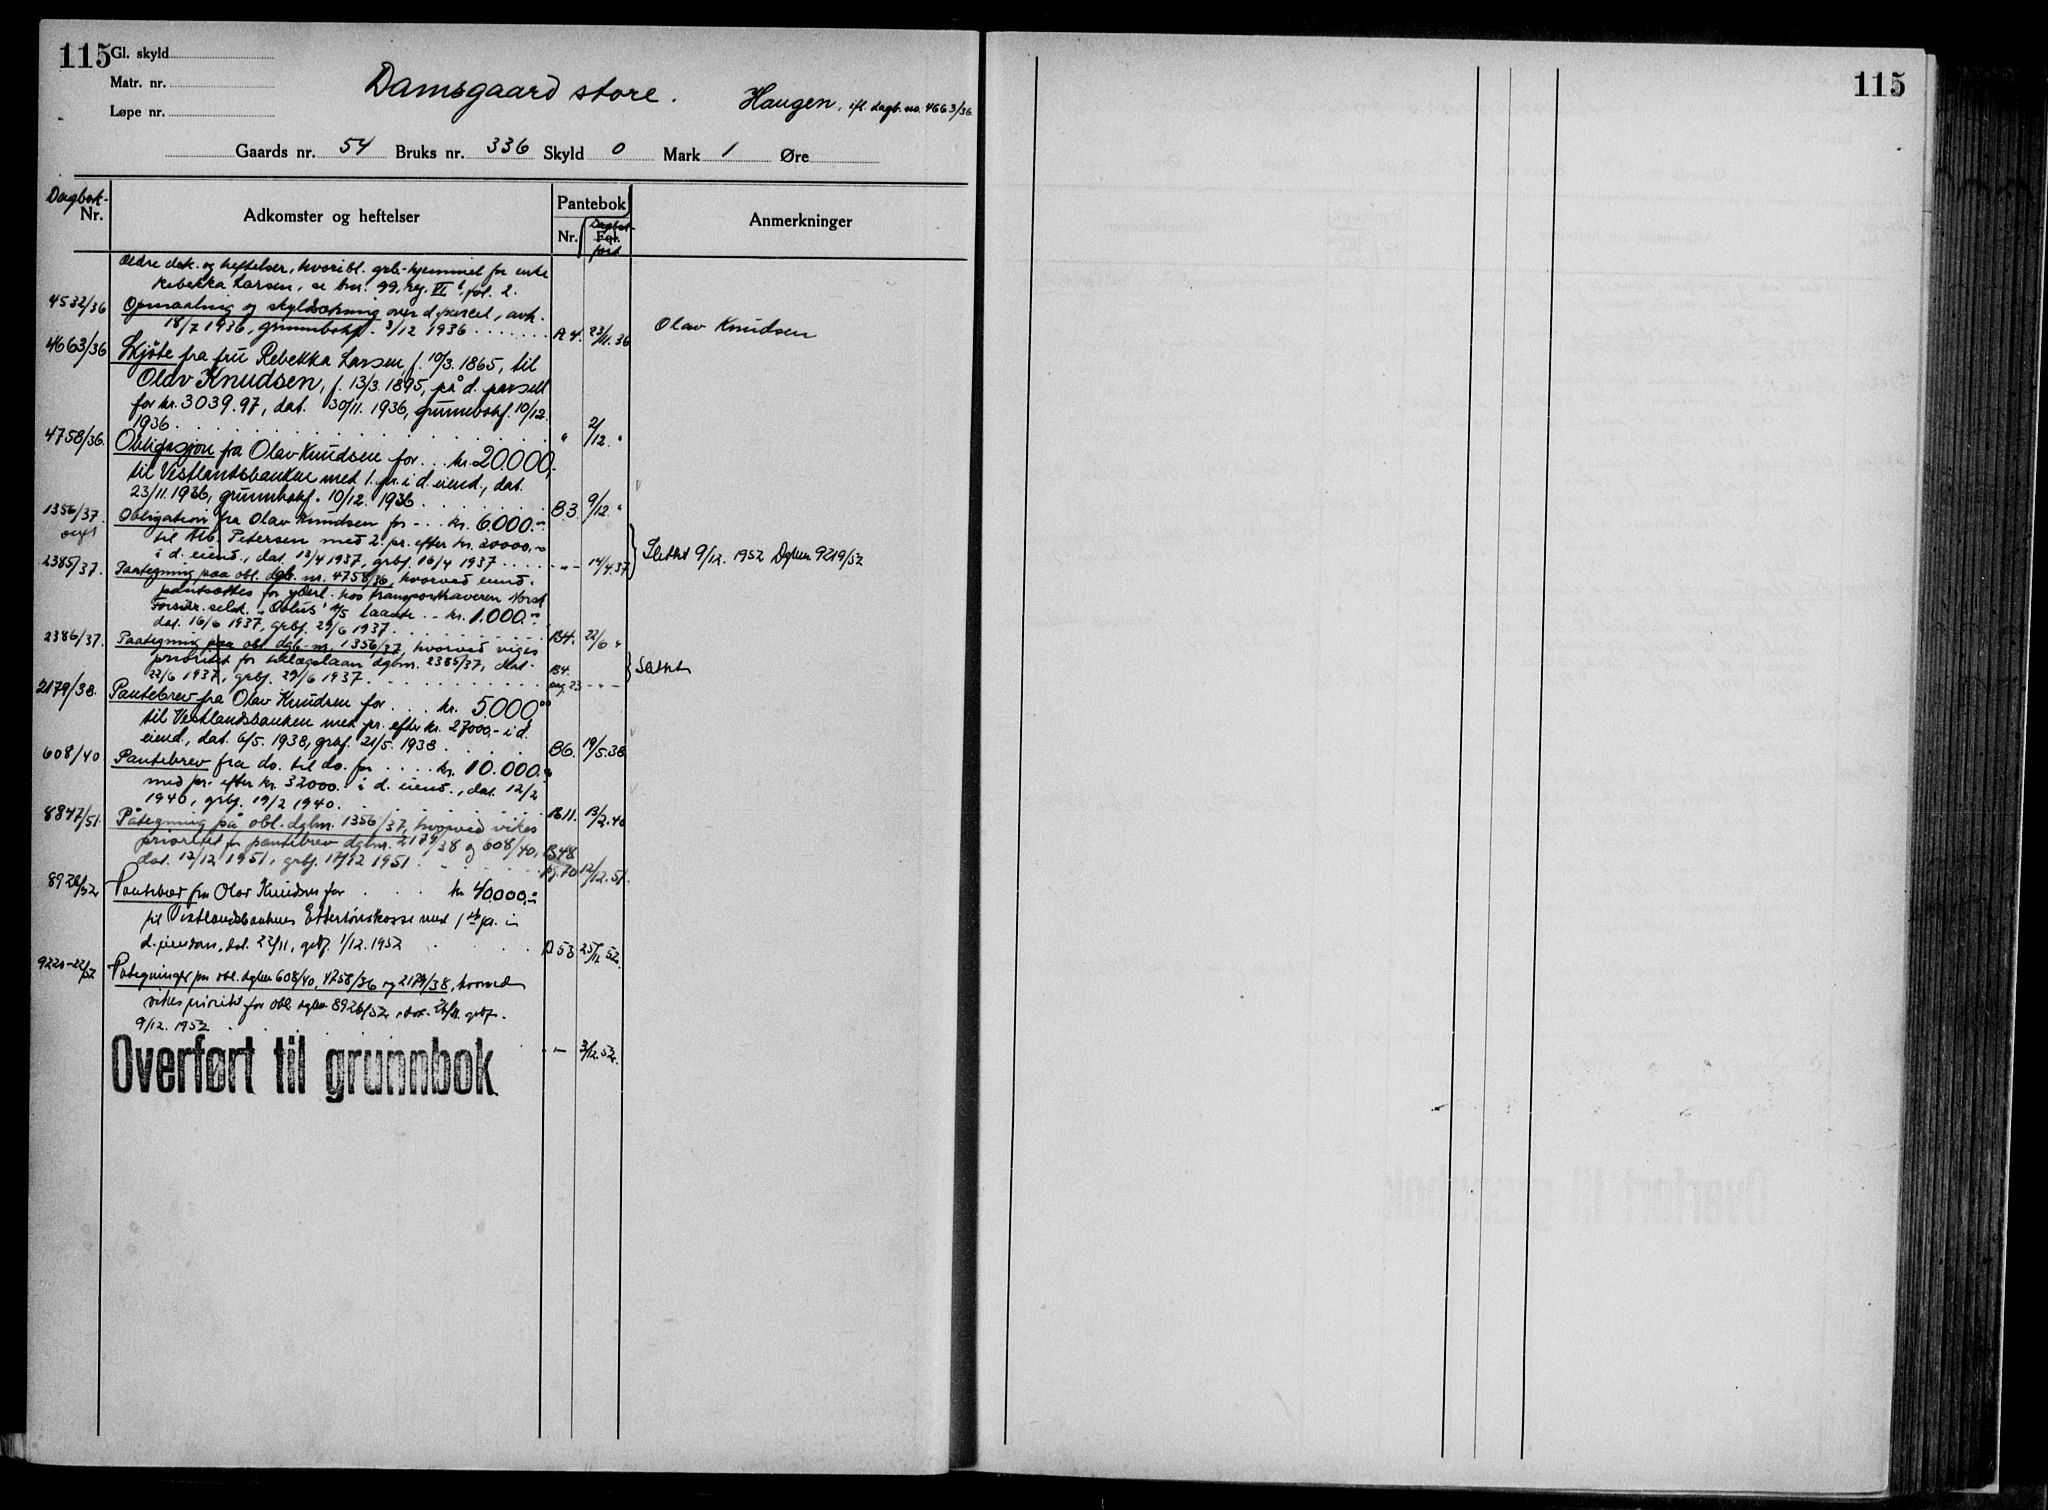 115 Gl. skyld
Matr. nr.
Løpe nr.
Damsgaard store. Haugen, ifl. dagb. no. 4663/36
Gaards nr. 54 Bruks nr. 336 Skyld 0 Mark 1 Øre
Dagbok- Nr. Adkomster og heftelser Pantebok Nr. Fol. Dagbok- ført Anmerkninger
Ældre dok. og heftelser, hvoribl. grb.-hjemmel for enke
Rebekka Larsen, se bnr. 99, reg. VI b, fol. 2.
4532/36 Opmaaling og skyldsetning over d. parcel, avh.
18/7 1936, grunnbokf. 3/12 1936 A 4. 23/11.36 Olav Knudsen
4663/36 Skjøte fra fru Rebekka Larsen, f. 10/3. 1865, til
Olav Knudsen, f. 13/3. 1895, på d. parsell
for kr. 3039.97, dat. 30/11. 1936, grunnbokf. 10/12.
1936 " 2/12. "
4758/36. Obligasjon fra Olav Knudsen for . . . kr. 20.000,-
til Vestlandsbanken med 1. pr. i d. eiend., dat.
23/11. 1936, grunnbokf. 10/12. 1936 B3. 9/12. "
1356/37. Obligation fra Olav Knudsen for - . . kr. 6000.-
til Alb. Petersen med 2. pr. efter kr. 20000,-
i d. eiend., dat. 13/4 1937, grbf. 16/4 1937 - " - 14/4.37 Slettet 9/12. 1952 Dgbnr 9219/52
2385/37. Paategning paa obl. dgb. nr. 4758/36, hvorved eiend.
pantsættes for yderl. hos transporthaveren Norsk
Forsikr. selsk. "Æolus" A/S laante . . kr. 1.000.-
dat. 16/6 1937, grbf. 29/6 1937 B4. 22/6 "
2386/37. Paategning paa obl. dgb.-nr. 1356/37, hvorved viges
prioritet for tillægslaan dgbnr. 2385/37, dat.
22/6 1937, grbf. 29/6 1937 B4. pag. 23 - " - Slettet
2179/38. Pantebrev fra Olav Knudsen for . . . kr. 5.000.00
til Vestlandsbanken med pr. efter kr. 27000.- i d.
eiend., dat. 6/5. 1938, grbf. 21/5. 1938 B6. 19/5.38
608/40 Pantebrev fra do. til do. for . . . . kr. 10.000.-
med pr. efter kr. 32000. i d. eiend., dat. 12/2
1940, grbf. 19/2 1940. B11. 13/2.40
8847/51. Påtegning på obl. dgbnr. 1356/37, hvorved vikes
prioritet for pantebrev dgbnr. 2179/38 og 608/40,
dat. 12/12 1951, grbf. 17/12 1951 B48 pg. 70 12/12.51.
8926/52 Pantebrev fra Olav Knudsen for . . . . kr 40000,-
til Vestlandsbankens Ettertrinskasse med 1ste pr. i
d. eiendom, dat. 22/11, grbf. 1/12. 1952 B53 25/11 52.
9220-22/52 Påtegninger på obl. dgbnr 608/40, 4758/36 og 2179/38, hvorved
vikes prioritet for obl. dgbnr 8926/52, dat. 26/11. grbf.
9/12. 1952 - " - 3/12.52.
Overført til grunnbok
115